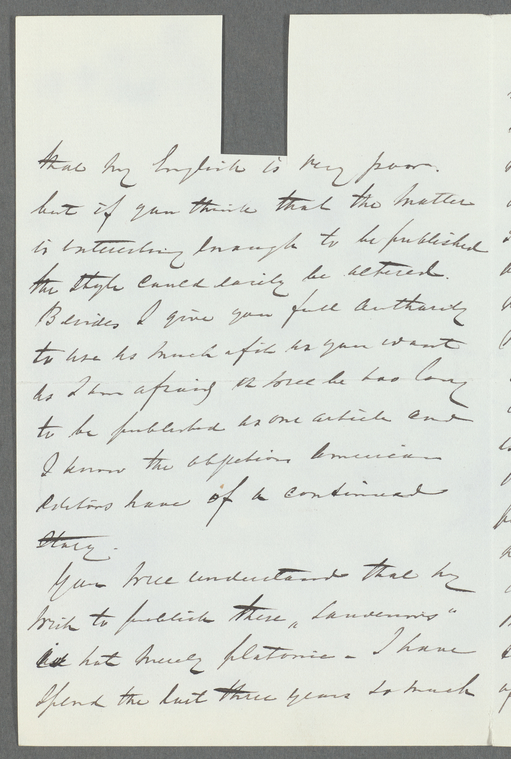 that my English is very poor.
but if you think that the matter
is interesting enough to be published
the style could easily be altered.
Besides I give you full authority
to use as much of it as you want
as I am afraid it will be too long
to be published as one article and
I know the objections American
editors have of a continued
story.
You will understand that my
wish to publish these „
is not merely platonic – I have
spend the last three years so much